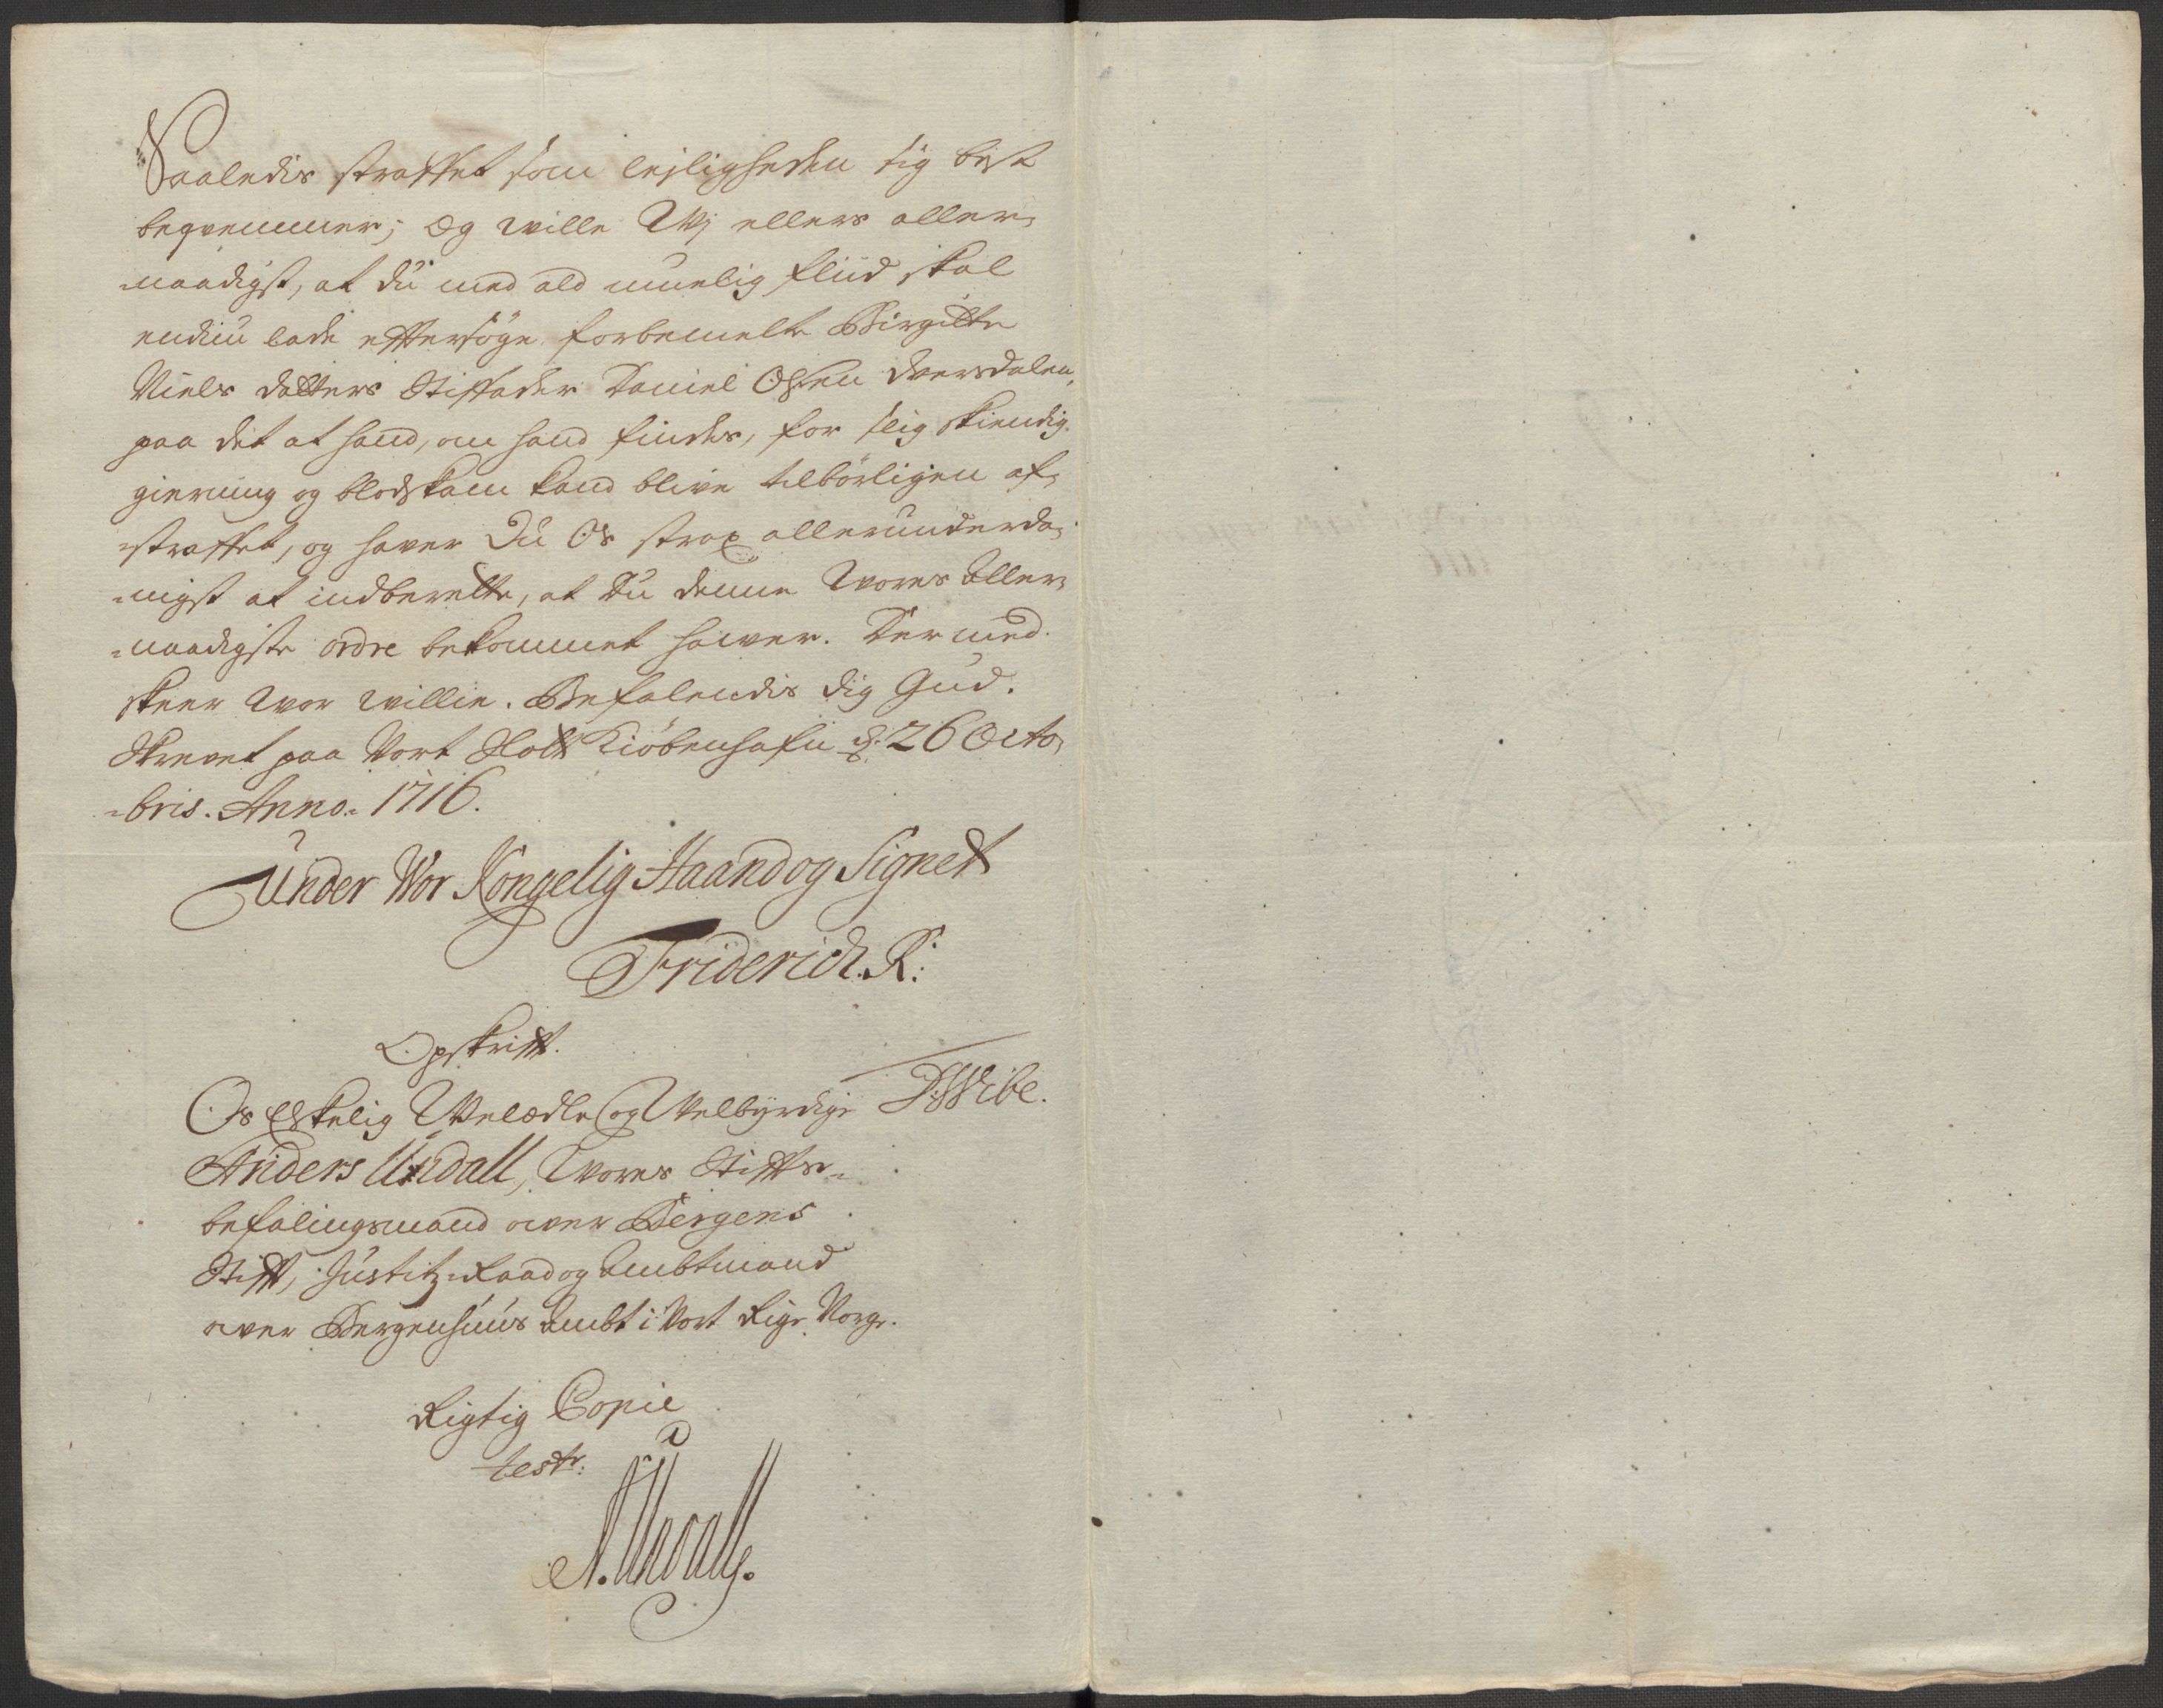 Saaledis straffet som lejligheden sig best
beqvemmer; Og wille Wj ellers aller,
-naadigst, at du med ald muelig fliid skal
endnu lade efftersøge forbemelte Birgitte
Niels datters Stiffader Daniel Olsen Dversdalen,
paa det at hand, om hand findes, for slig skiendig
gierning og blodskam kand blive tilbørligen af,
-straffet, og haver Du Os strax allerunderda,
-nigst at indberette, at Du denne Wores Aller,
-naadigste ordre bekommet hawer. Der med
skeer Wor willie. Befalendis dig Gud.
Skrevet paa Vort Slott Kiøbenhafn d: 26 Octo,
-bris. Anno. 1716.
Under Wor Kongelig Haand og Signet
Friderich. R:
Opskrifft.
D: Wibe.
Os Elskelig Welædle og Welbyrdige
Anders Undall, Wores Stiffts-
befalingsmand ower Bergens
Stifft, Justitz-Raad og Ambtmand
ower Bergenhuus Ambt i Vort Rige Norge.
Rigtig Copie
test:
A. Undall.